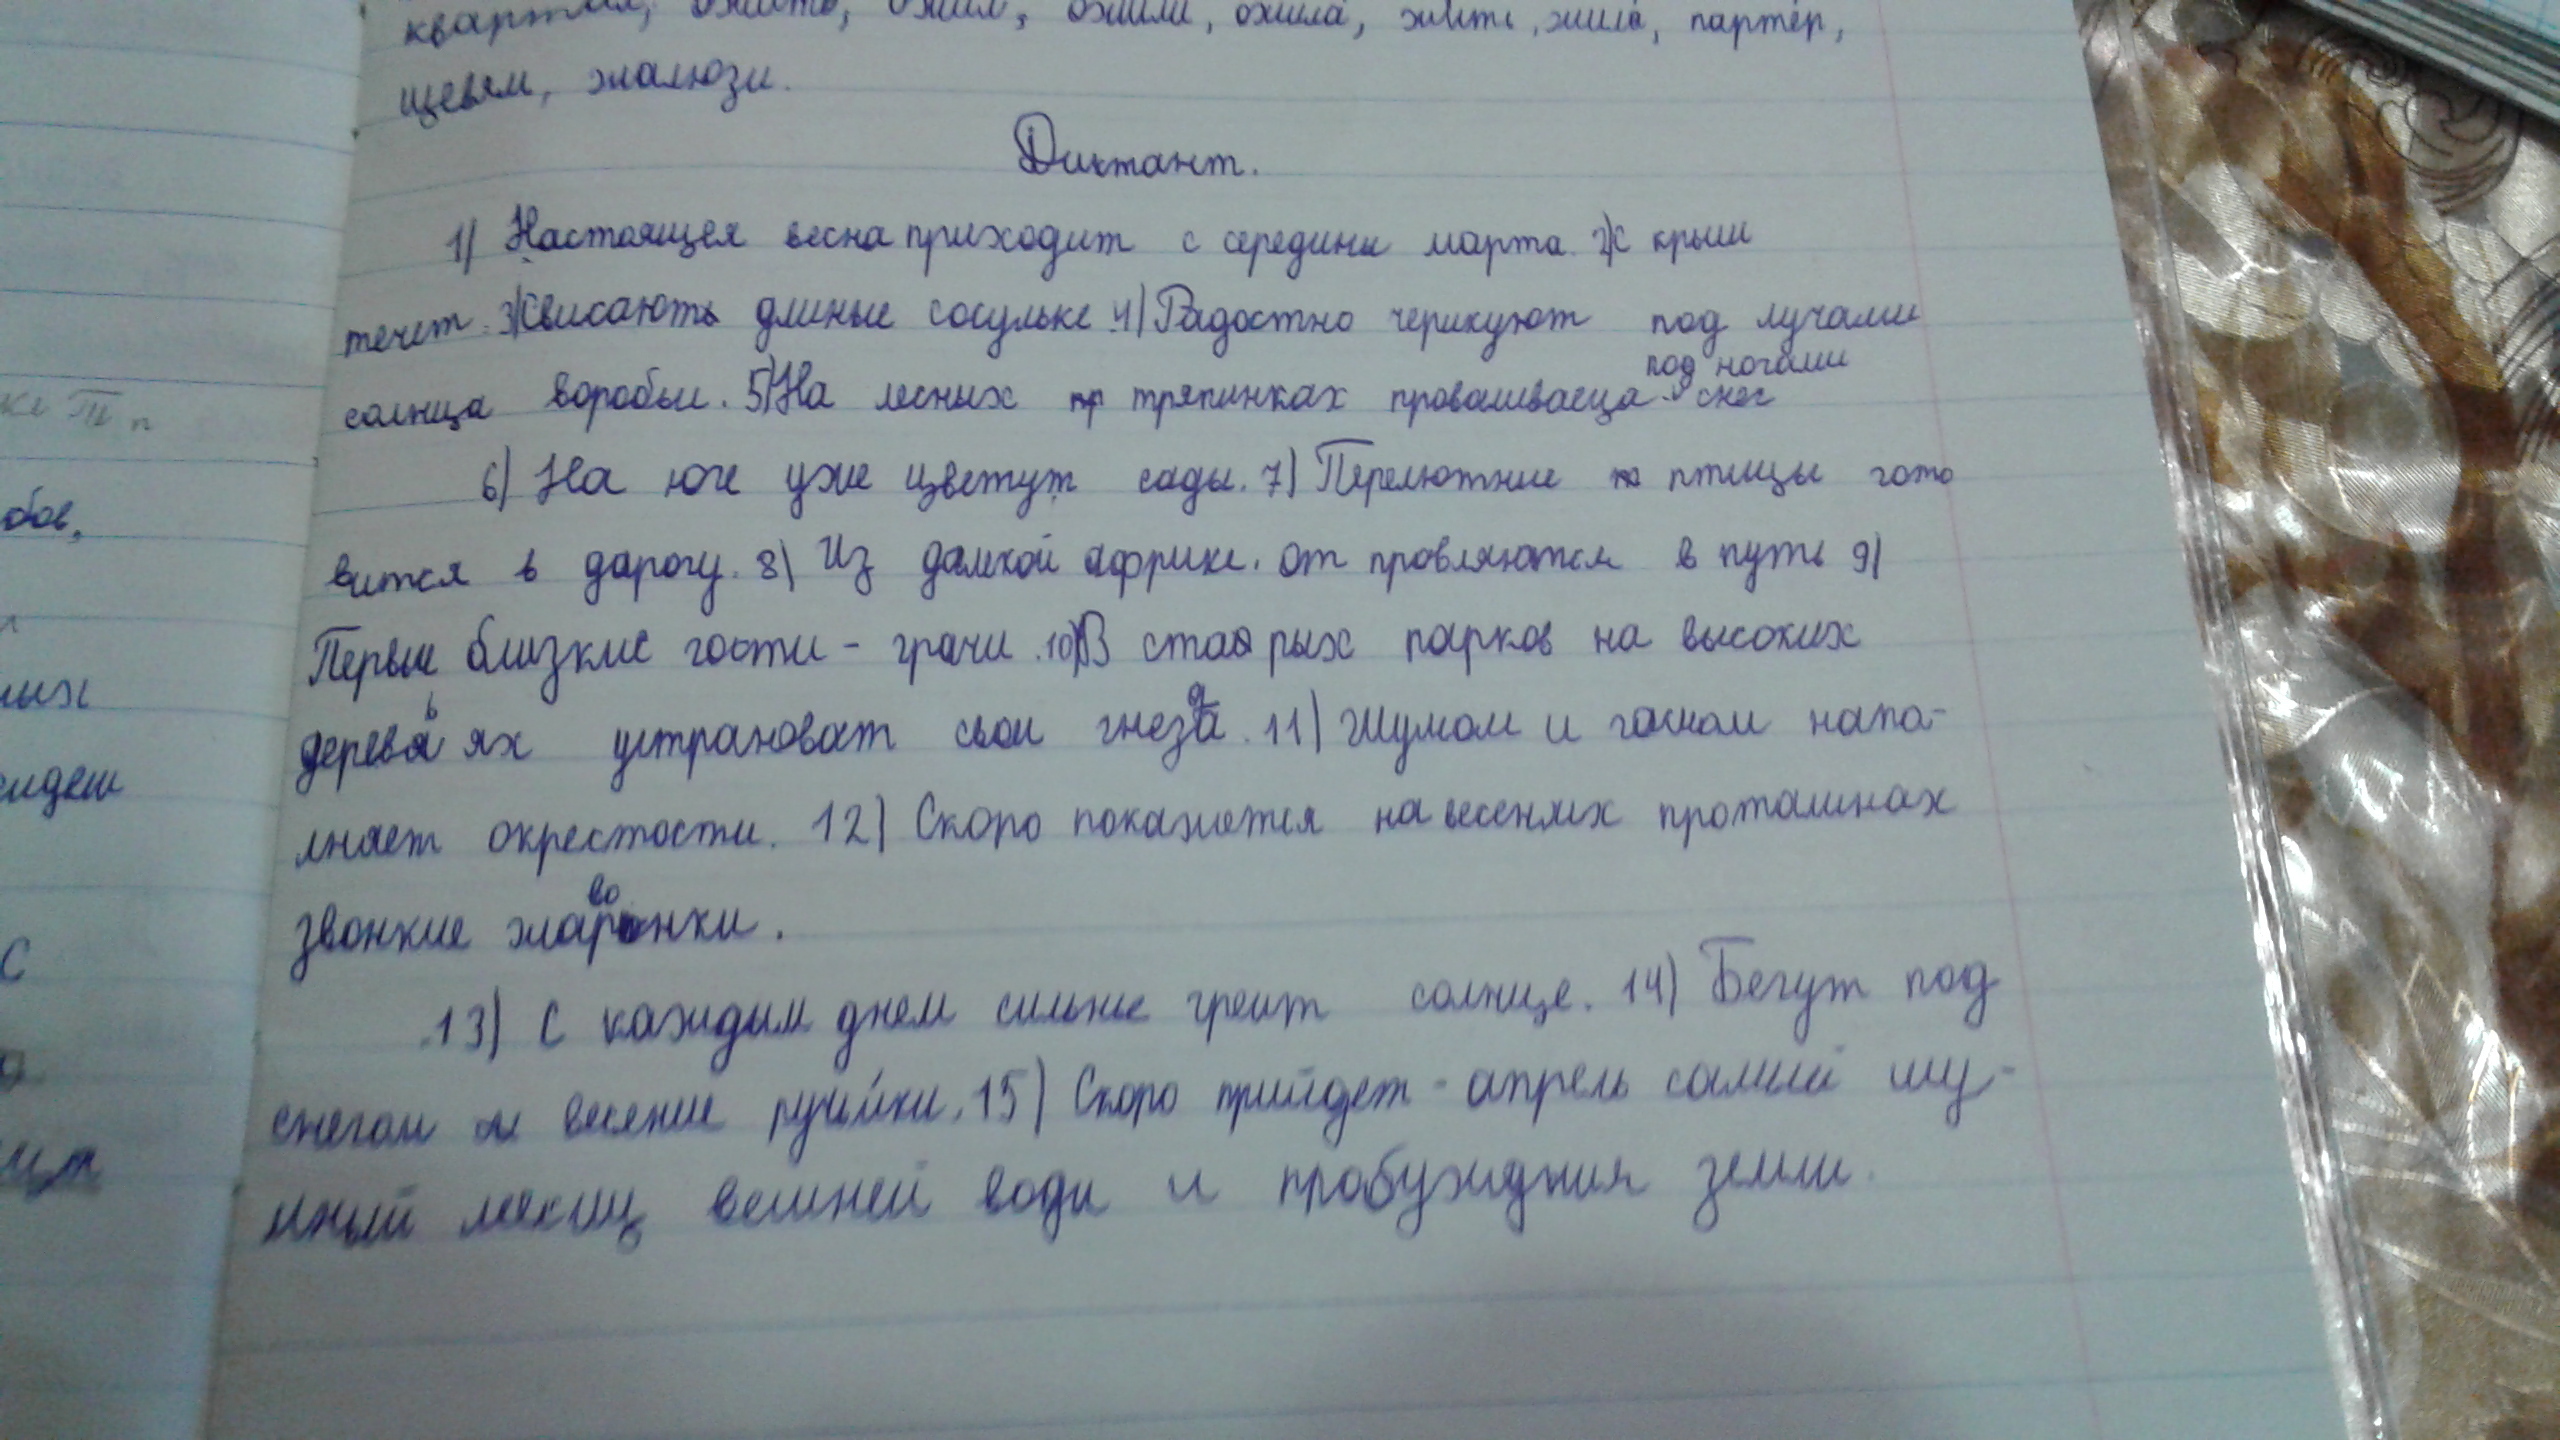 ожила, жить, жила, партер,
щевям, жалюзи.
Диктант.
1) Настоящея весна приходит с середины марта. 2) С крыш
течет. 3) Свисають длиные сосульке. 4) Радостно черикуют под лучами
под ногами
солнца воробьи. 5) На лесных тряпинках проваливаеца снег
6) На юге уже цветут сады. 7) Перелютние птицы гото
вится в дарогу. 8) Из далкой африке. от провляются в путь 9)
Первые близкие гости - грачи. 10) В старых парков на высоких
деревьях устрановат свои гнезда. 11) Шумом и гамом напо-
лняет окрестости. 12) Скоро покажется на весених проталинах
звонкие жаворонки.
13) С каждым днем сильне греит солнце. 14) Бегут под
снегом весение ручийки. 15) Скоро прийдет - апрель самый шу-
мный месиц вешней воды и пробуждния земли.
обов,
ных
сидеш
С